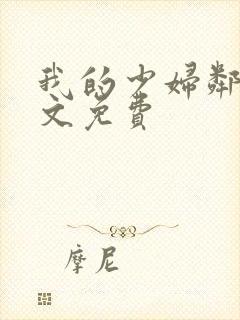 我的少妇鄰
文免費
摩尼